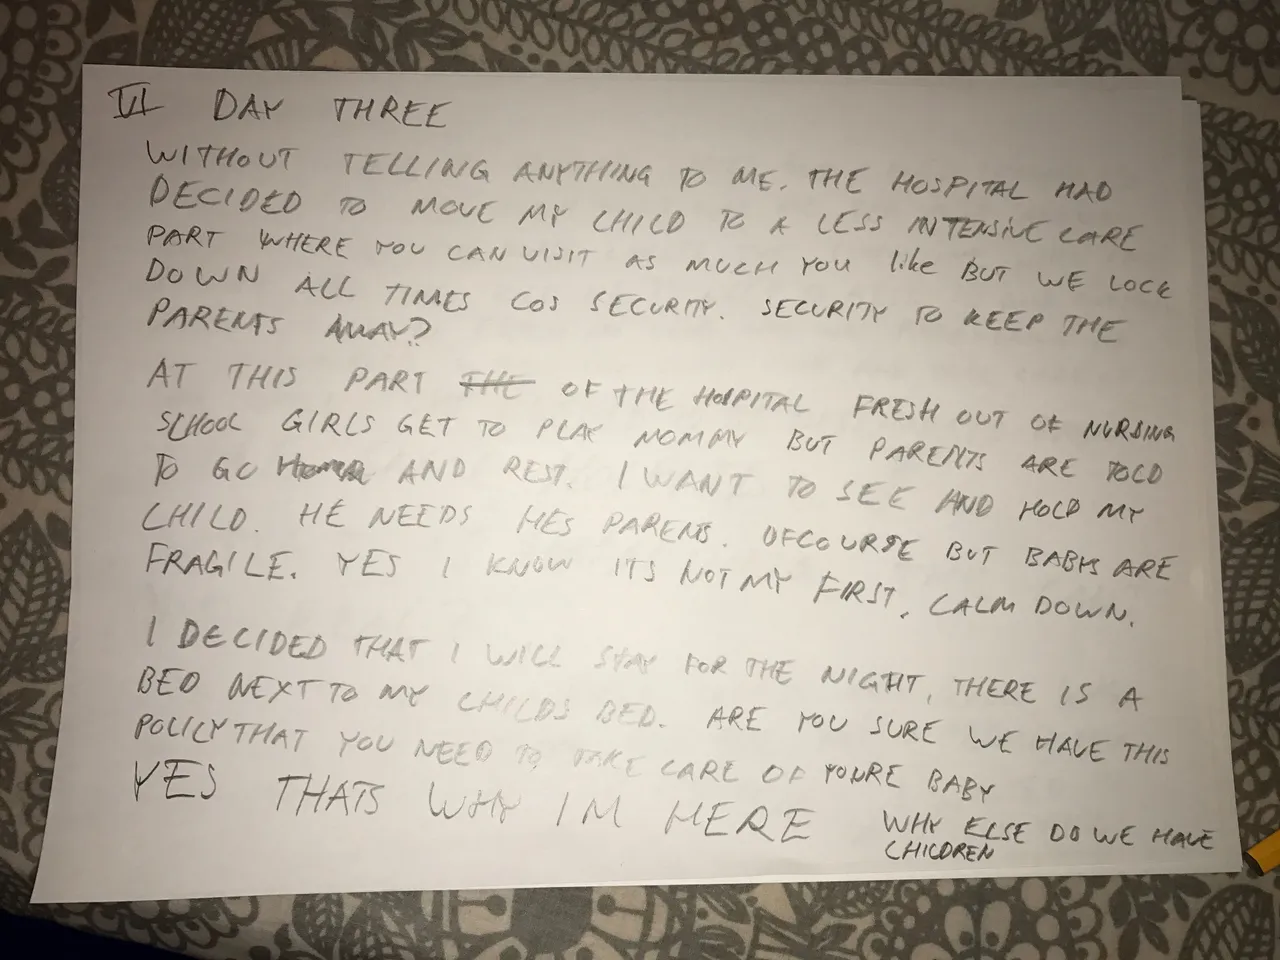 VI DAY THREE
WITHOUT TELLING ANYTHING TO ME. THE HOSPITAL HAD
DECIDED TO MOVE MY CHILD TO A LESS INTENSIVE CARE
PART WHERE YOU CAN VISIT AS MUCH YOU like BUT WE LOCK
DOWN ALL TIMES COS SECURITY. SECURITY TO KEEP THE
PARENTS AWAY?
AT THIS PART THE OF THE HOSPITAL FRESH OUT OF NURSING
SCHOOL GIRLS GET TO PLAY MOMMY BUT PARENTS ARE TOLD
TO GO HOME AND REST. I WANT TO SEE AND HOLD MY
CHILD. HE NEEDS HES PARENTS. OFCOURSE BUT BABYS ARE
FRAGILE. YES I KNOW ITS NOT MY FIRST. CALM DOWN.
I DECIDED THAT I WILL STAY FOR THE NIGHT, THERE IS A
BED NEXT TO MY CHILDS BED. ARE YOU SURE WE HAVE THIS
POLICY THAT YOU NEED TO TAKE CARE OF YOURE BABY
YES THATS WHY IM HERE
WHY ELSE DO WE HAVE
CHILDREN